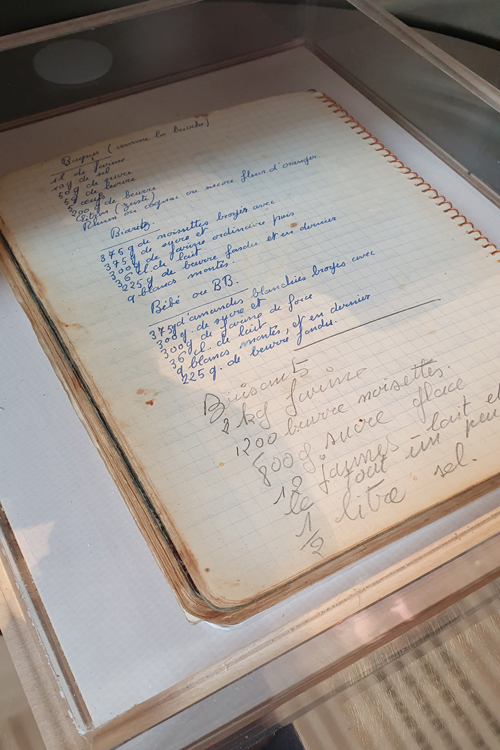 Bugnes (comme les beurrées)
1 l de farine
10 g de sel
50 g de sucre
5 œufs
200 g de beurre
Citron (zeste)
Rhum ou cognac ou encore fleur d'oranger
Biarritz.
375 g de noisettes broyés avec
375 g de sucre et
300 g farine ordinaire puis
36 cl. de lait
225 g de beurre fondu et en dernier
9 blancs montés.
Bébé ou BB.
375 g d'amandes blanchies broyés avec
300 g. de sucre et
300 g de farine de force
36 cl. de lait
9 blancs montés, et en dernier
225 g. de beurre fondu.
2 kg farine
1200 beurre noisettes.
800 g sucre glace
12 jaunes - lait et
le tout un peu
1/2 litre sel.